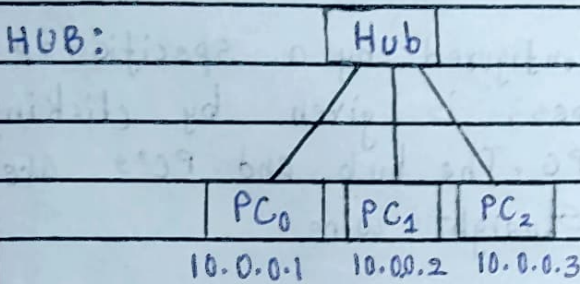 HUB:
Hub
PC₀ PC₁ PC₂
10.0.0.1 10.00.2 10.0.0.3